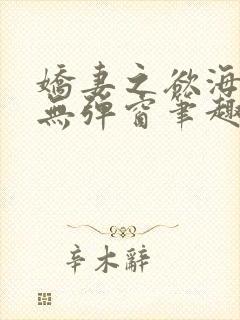 嬌妻之慾海
無彈窗筆趣
辛木辭